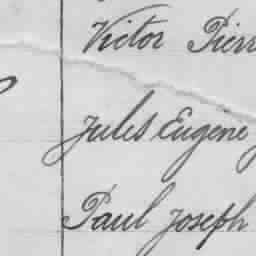 Victor Pierr
Jules Eugène
Paul Joseph